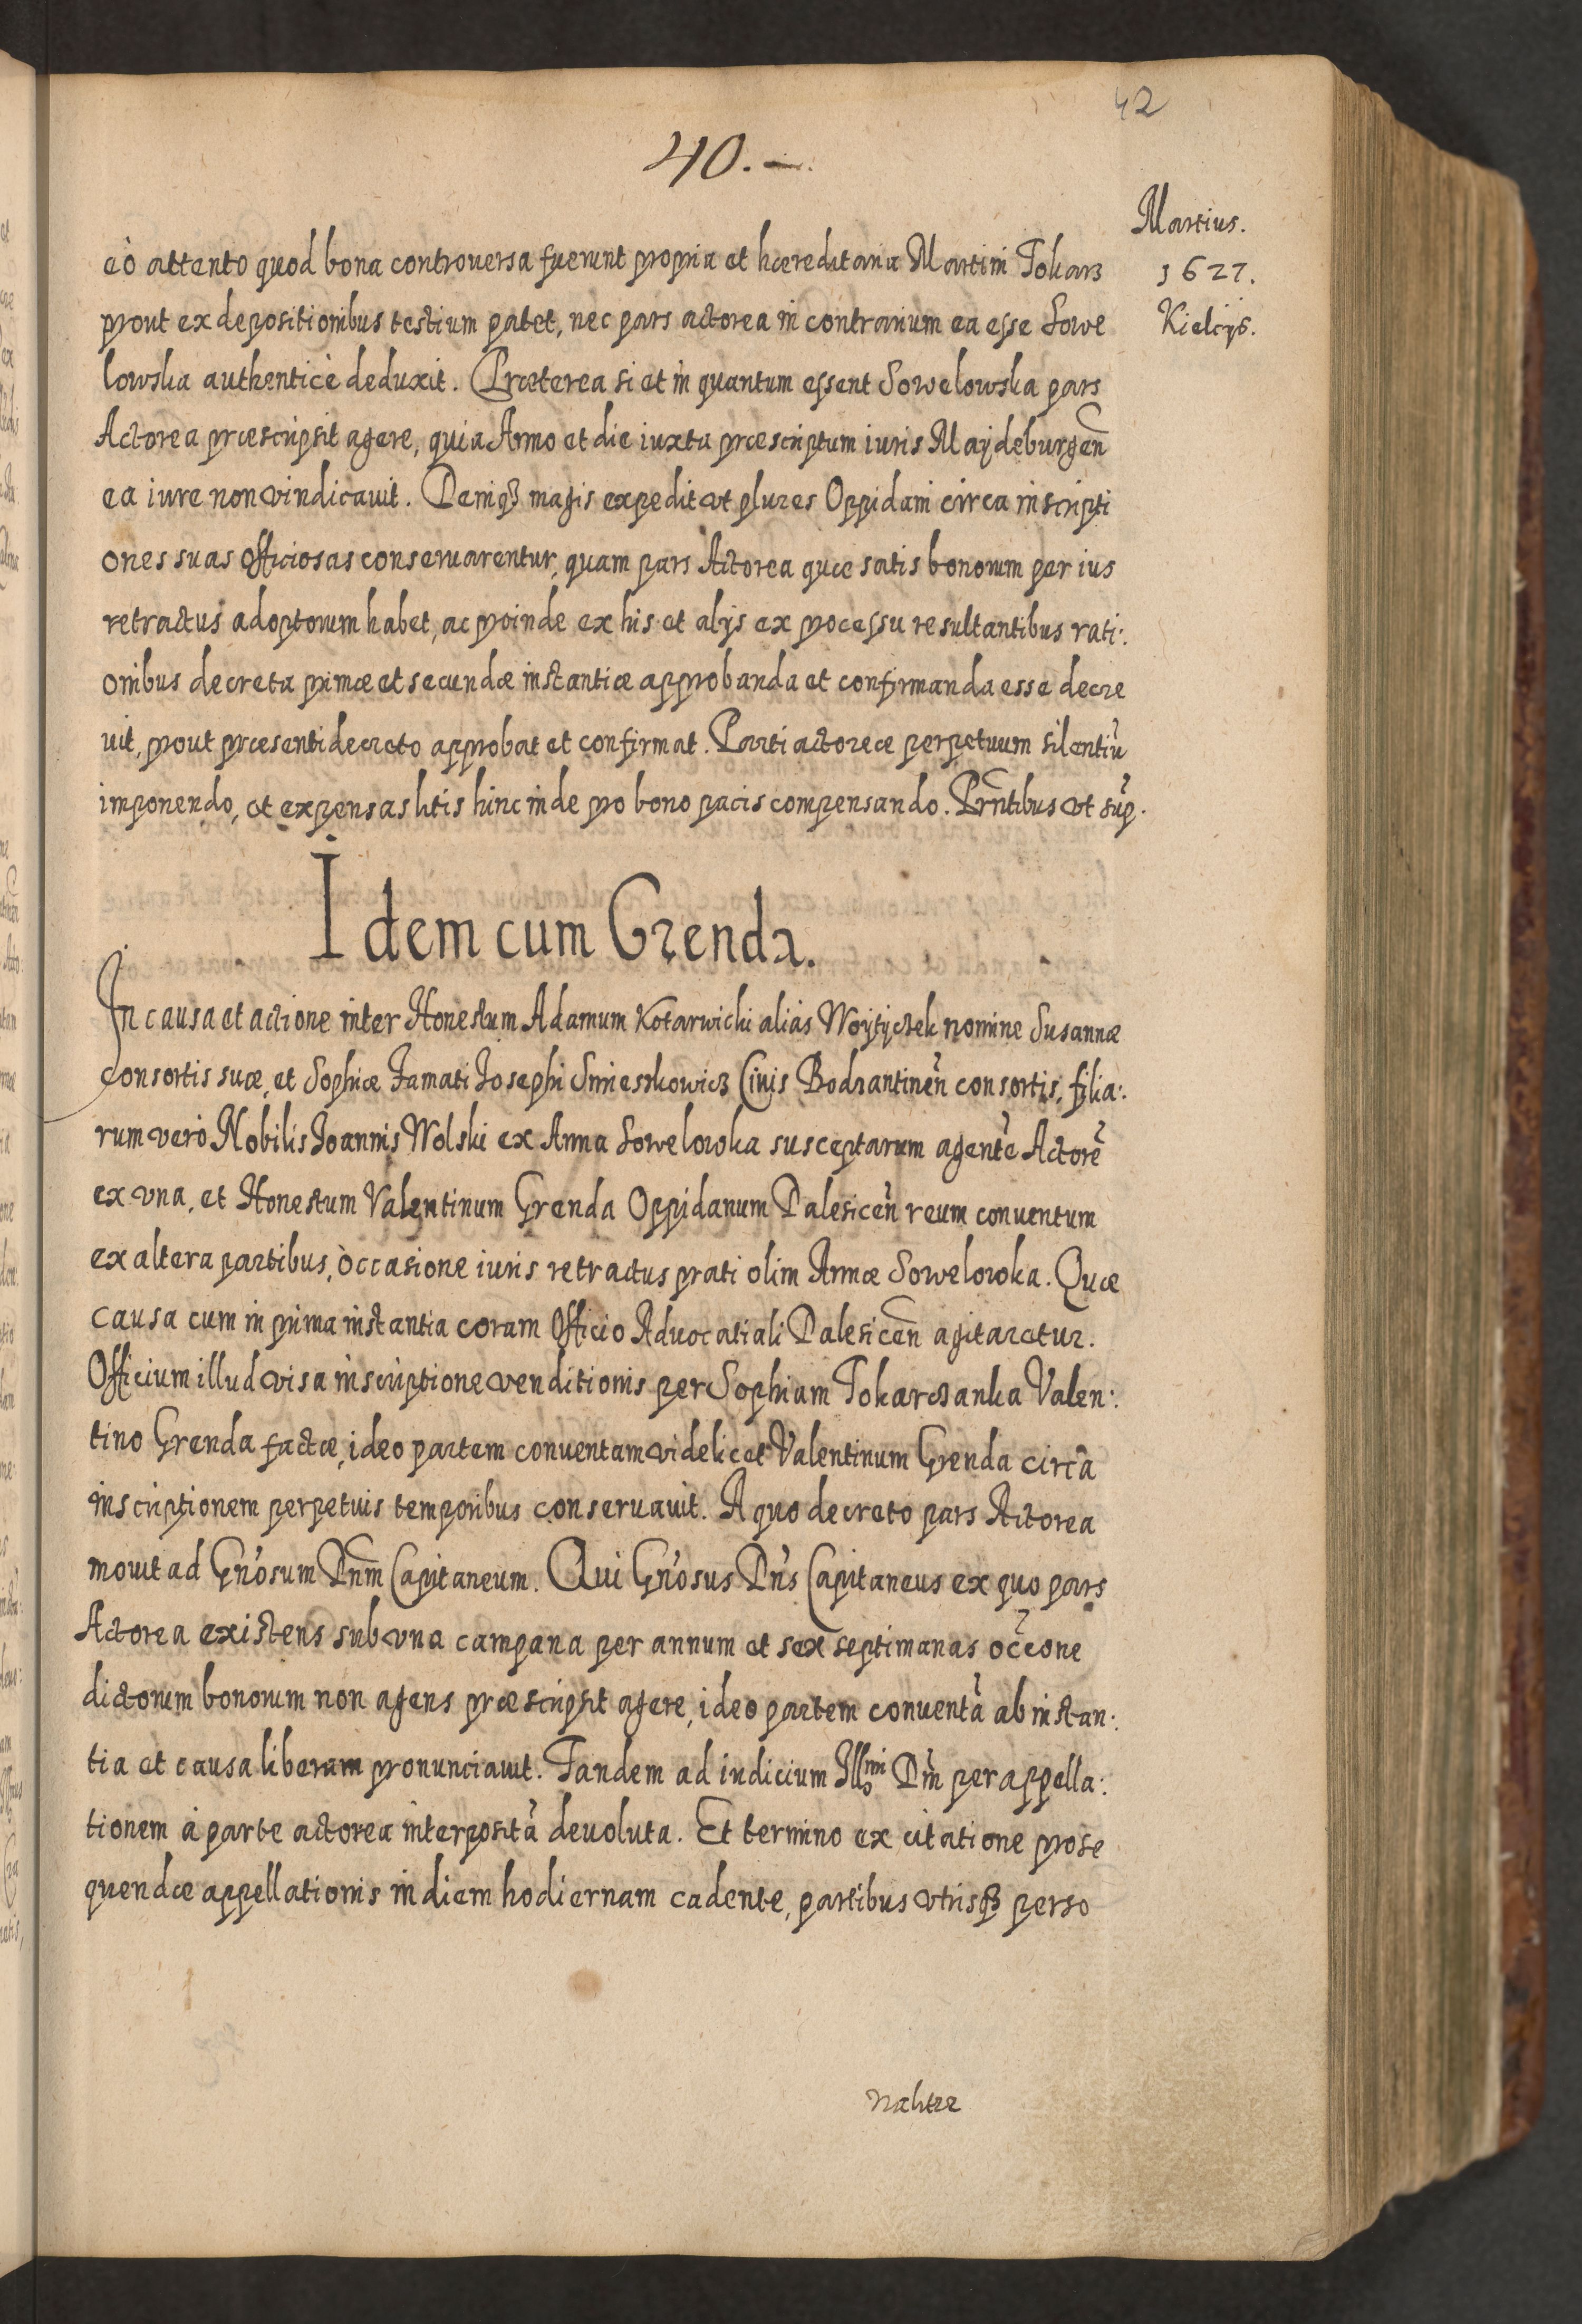 42
40.–
Martius.
1627.
Kielcijs.
eò attento quod bona controuersa fuerunt propria et hæreditaria Martini Tokarz
prout ex depositionibus testium patet, nec pars actorea in contrarium ea esse Sowe
lowska authenticè deduxit. Præterea si et in quantum essent Sowelowska pars
Actorea præscripsit agere, quia Anno et die iuxta præscriptum iuris Maydeburgen̄
ea iure non vindicauit. Deniqȝ magis expedit vt plures Oppidani circa inscripti
ones suas officiosas conseruarentur, quam pars Actorea quæ satis bonorum per ius
retractus adoptorum habet, ac proinde ex his et alijs ex processu resultantibus rati:
onibus decreta primæ et secundæ instantiæ approbanda et confirmanda esse decre
uit, prout præsenti decreto approbat et confirmat. Parti actoreæ perpetuum silentiū
imponendo, et expensas litis hinc inde pro bono pacis compensando. Prn̄tibus vt sup̄.
Idem cum Grenda.
In causa et actione inter Honestum Adamum Kotarwicki alias Woytyczek nomine Susannæ
consortis suæ, et Sophiæ Famati Josephi Smieszkowicz Ciuis Bodzantinen̄ consortis, filia:
rum verò Nobilis Joannis Wolski ex Anna Sowelowka susceptarum agentē Actorē
ex vna, et Honestum Valentinum Grenda Oppidanum Dalesicen̄ reum conuentum
ex altera partibus, òccasione iuris retractus prati olim Annæ Sowelowka. Quæ
causa cum in prima instantia coram Officio Aduocatiali Dalesicen̄ agitaretur.
Officium illud visa inscriptione venditionis per Sophiam Tokarczanka Valen:
tino Grenda factæ, ideo partem conuentam videlicet Valentinum Grenda circa
inscriptionem perpetuis temporibus conseruauit. A quo decreto pars Actorea
mouit ad Gn̄osum Dn̄m Capitaneum. Qui Gn̄osus Dn̄s Capitaneus ex quo pars
Actorea existens sub vna campana per annum et sex septimanas occ̄one
dictorum bonorum non agens præscripsit agere, ideo partem conuentā ab instan:
tia et causa liberam pronunciauit. Tandem ad iudicium Illmi Dn̄i per appella:
tionem à parte actorea interpositā deuoluta. Et termino ex citatione prose
quendæ appellationis in diem hodiernam cadente, partibus vtrisqȝ perso
naliter